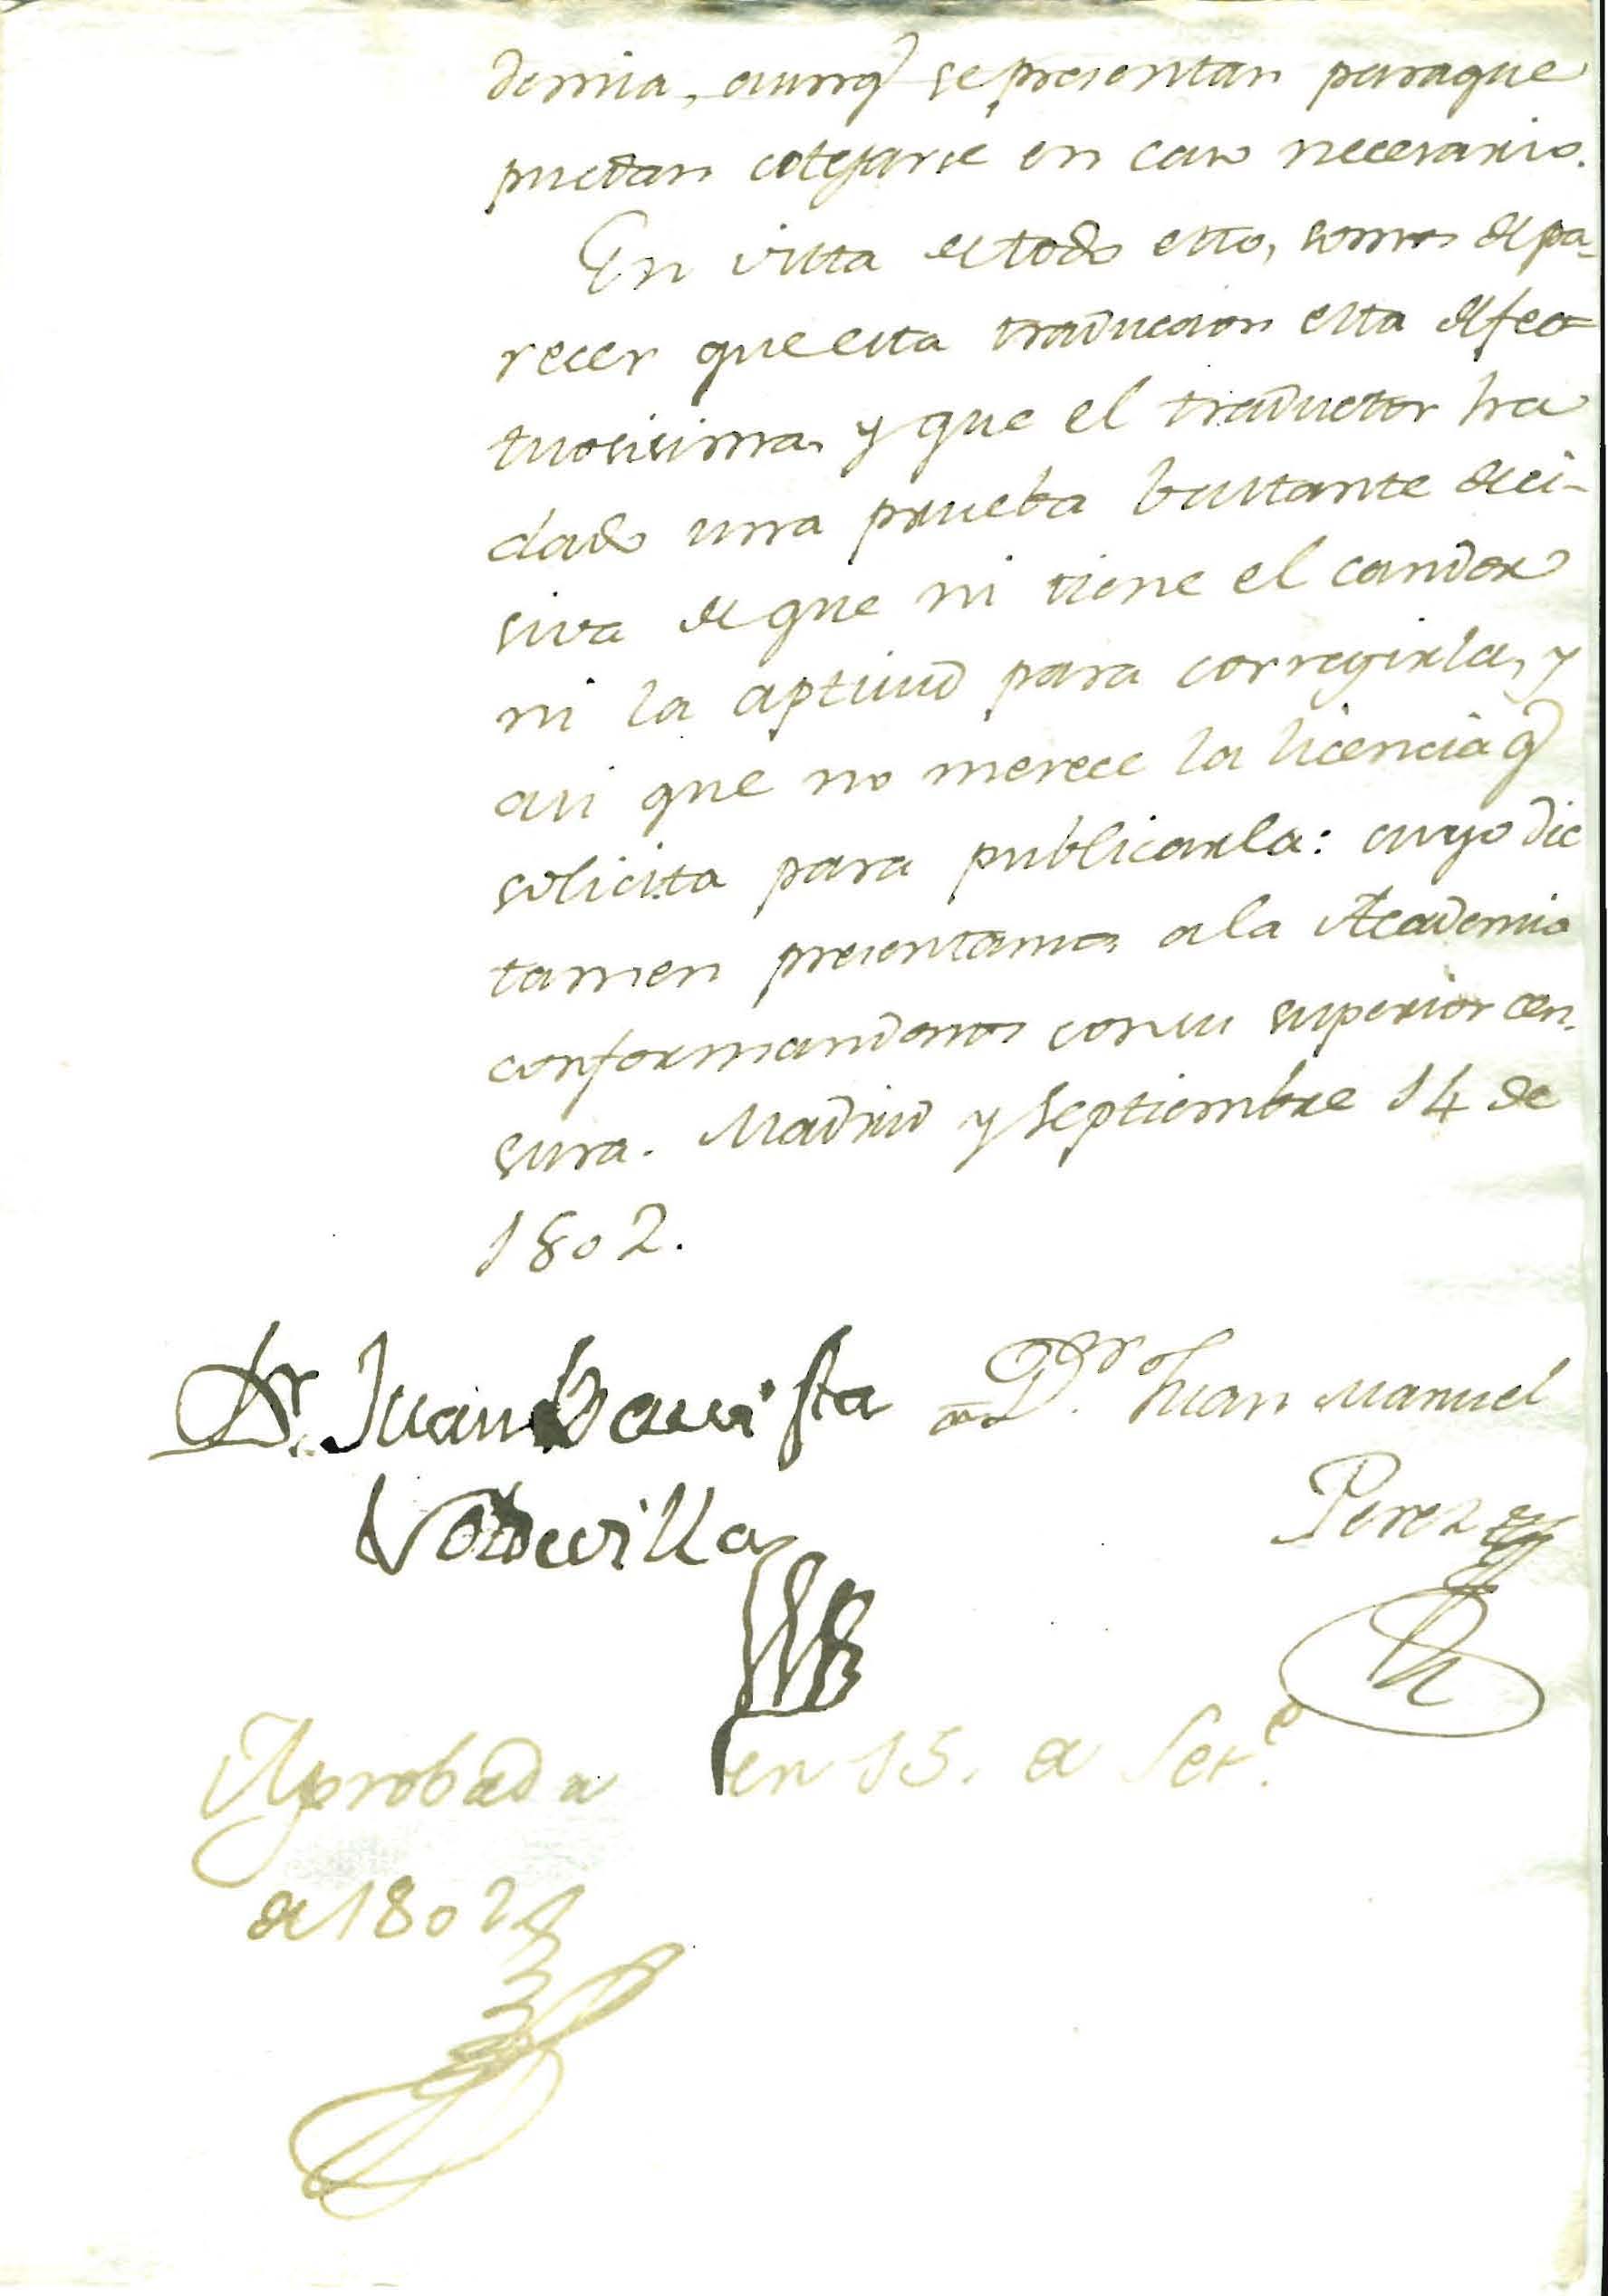 demia, aunq̃ se presentan paraque
puedan cotejarse en caso necesario.
En vista de todo esto, somos de pa-
recer que esta traducion esta defec=
tuosisima, y que el traductor ha
dado una prueba bastante deci-
siva de que ni tiene el candor
ni la aptitud para corregirla, y
asi que no merece la licencia q̃
solicita para publicarla: cuyo dic
tamen presentamos a la Academia
conformandonos con su superior cen-
sura. Madrid y Septiembre 14 de
1802.
Dr. Juan Bautista
Dr. Juan Manuel
Perez
Aprobada en 15. de Set.e
de 1802